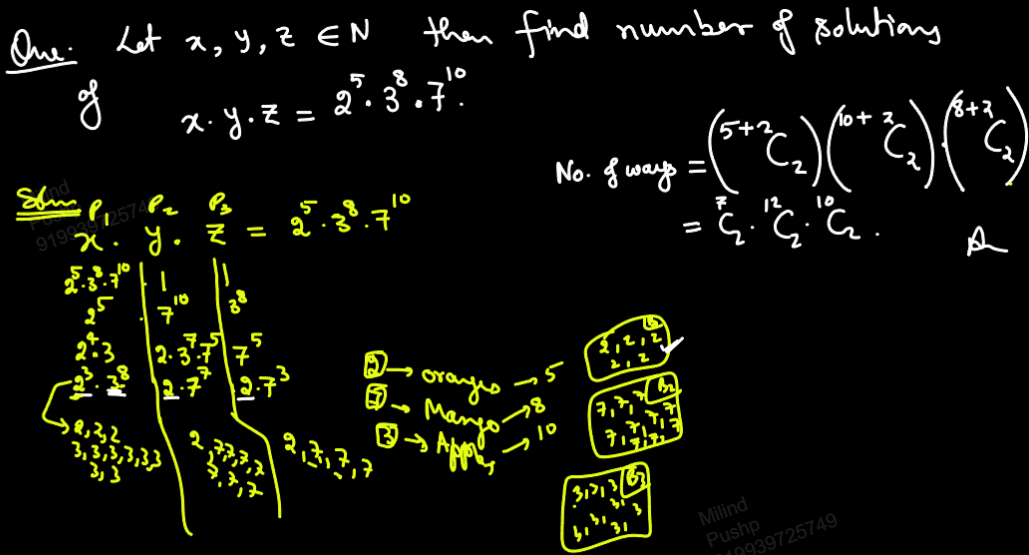 Que. Let x, y, z ∈ N then find number of solutions
of x. y. z = 2^5. 3^8. 7^10.
No. of ways = (^{5+2}C_2) (^{10+2}C_2). (^{8+2}C_2)
= ^7C_2. ^12C_2. ^10C_2.
Soln P_1 P_2 P_3
x. y. z = 2^5. 3^8. 7^10
2^5. 3^8. 7^10 1 1
2^5 7^10 3^8
2^4. 3 2. 3^7. 7^5 7^5
2^3. 3^8 2. 7^7 2. 7^3
2, 2, 2
3, 3, 3, 3, 3, 3
3, 3
2, 7, 7, 7, 7
7, 7, 7
2, 7, 7, 7
2 → oranges → 5
7 → Mango → 8
3 → Apples → 10
2, 2, 2
2, 2
7, 7, 7 B_2
7, 7, 7, 7
7, 7, 7
3, 3, 3 B_3
3, 3, 3, 3
Milind
Pushp
919939725749
Milind
Pushp
919939725749